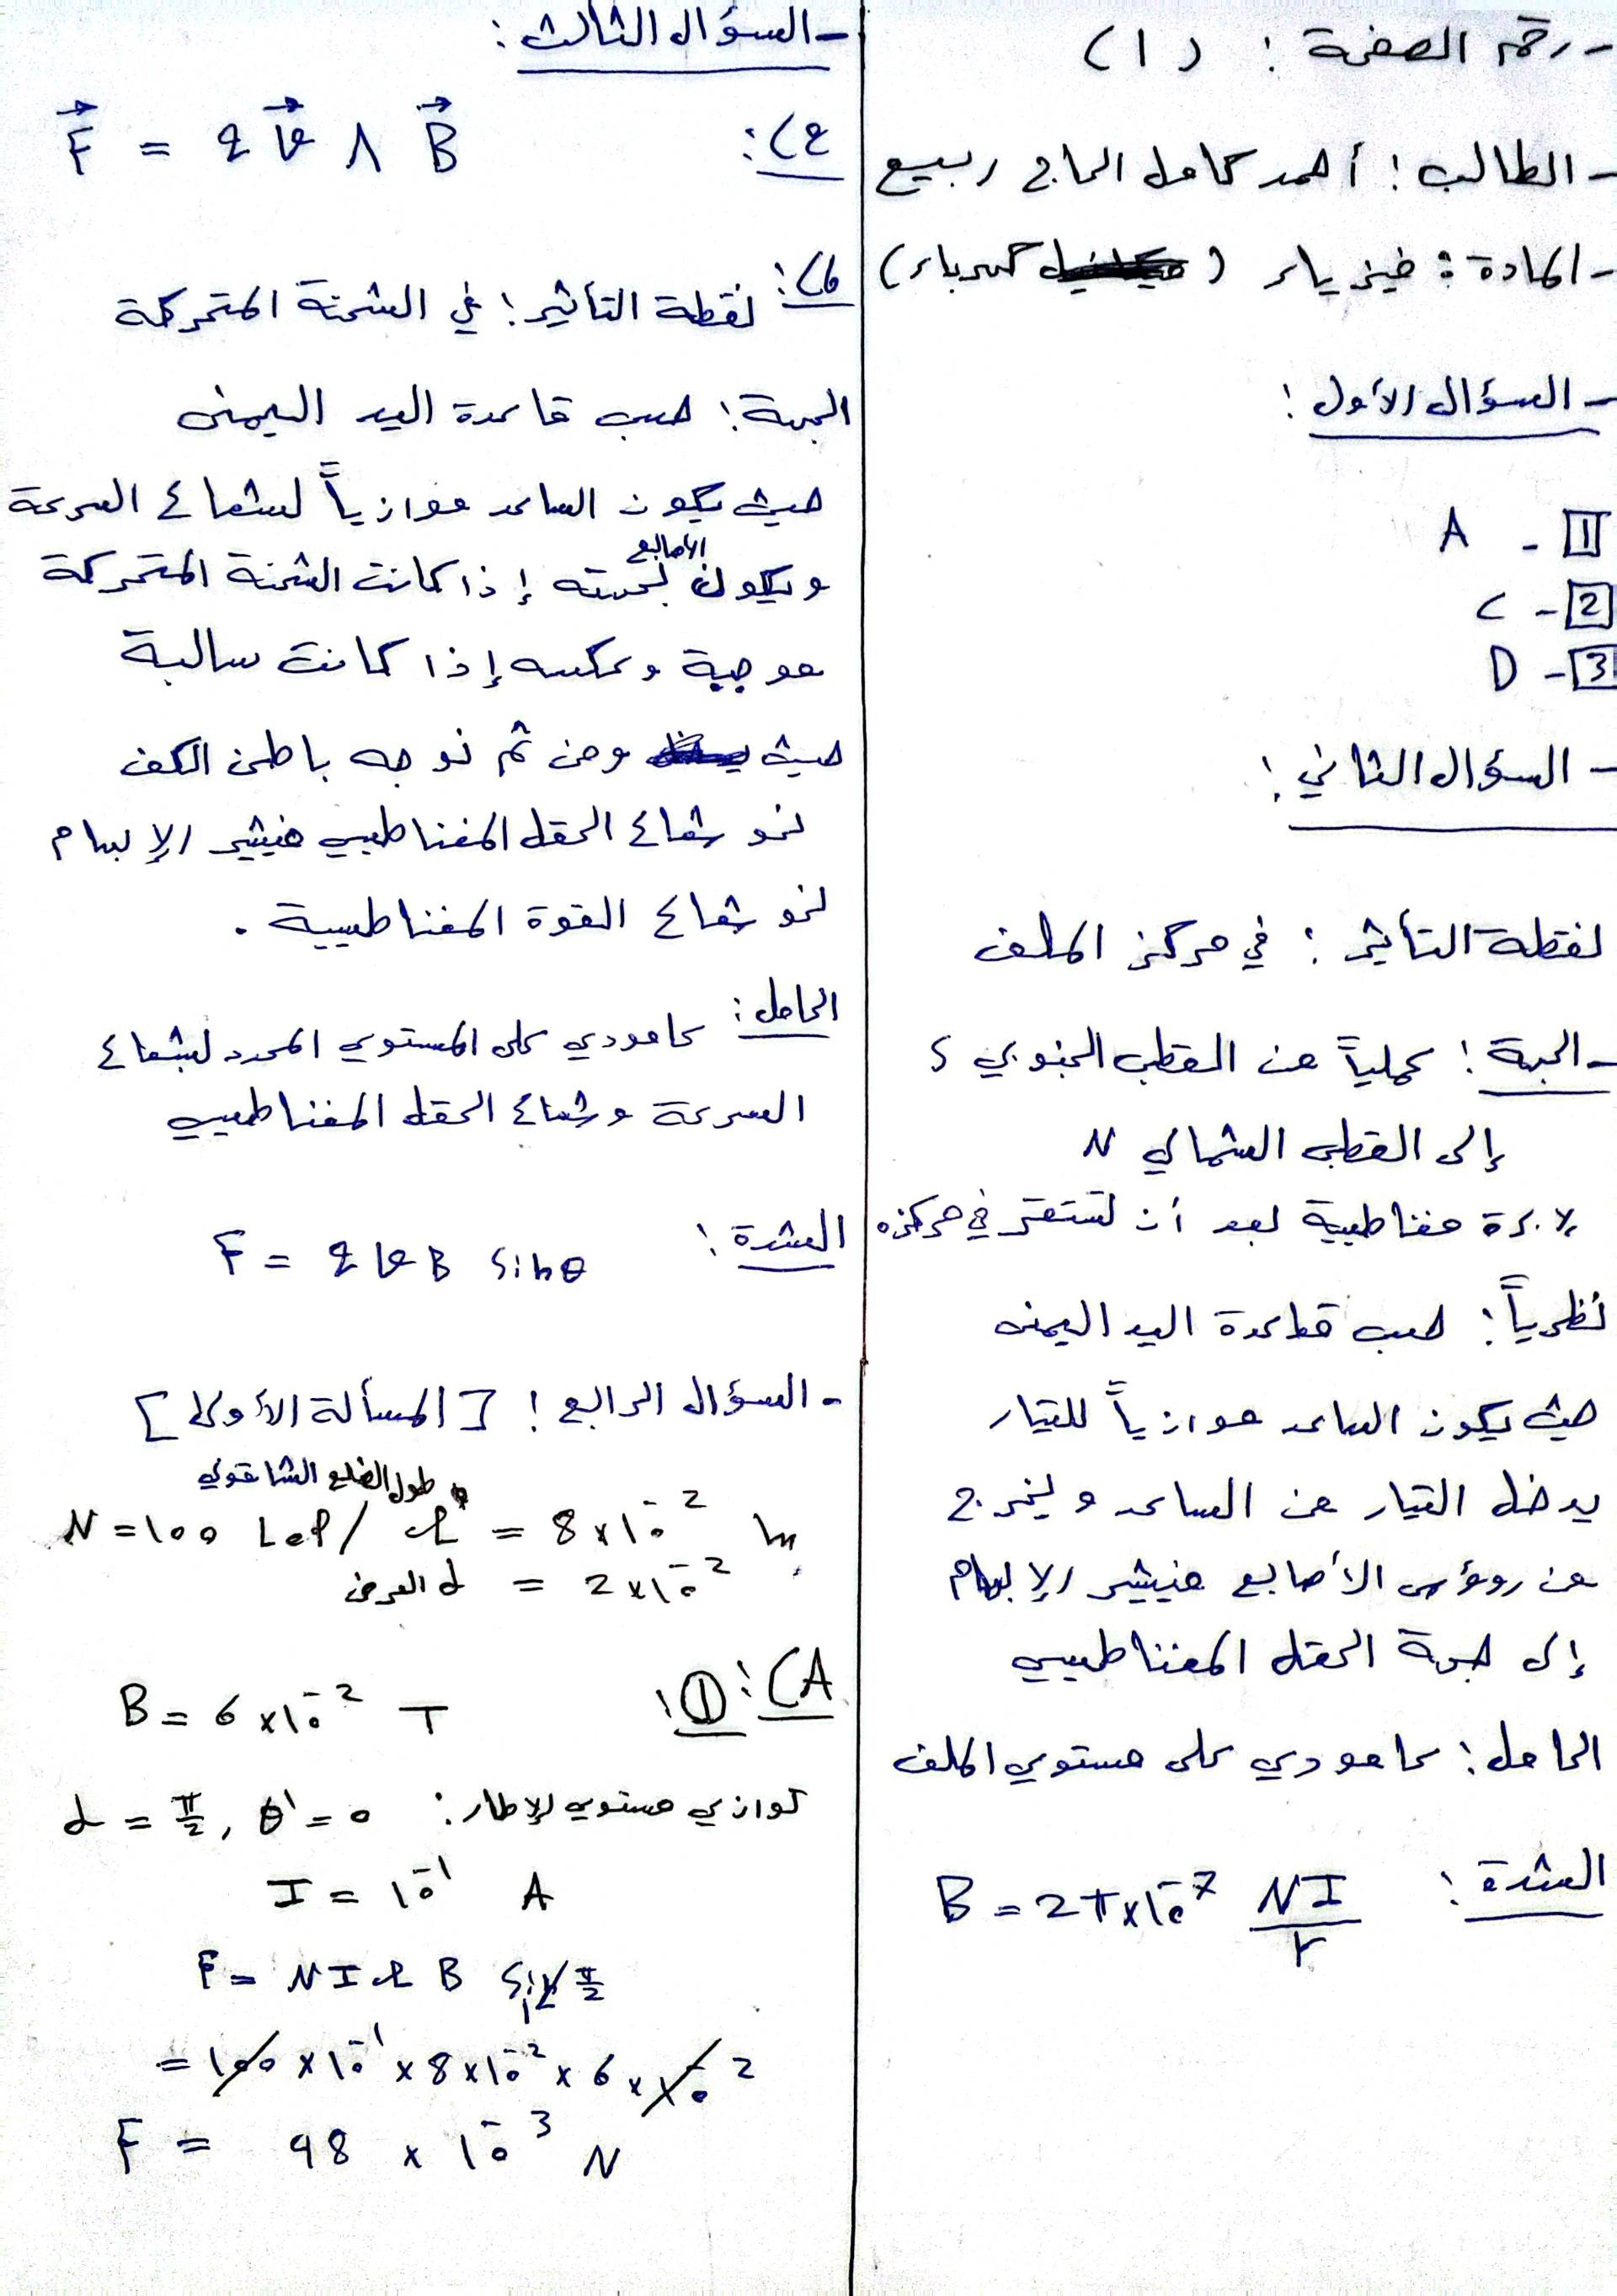 - رقم الصفحة : (1)
- الطالب : أحمد كامل الحاج ربيع
- المادة : فيزياء ( كهرباء )
- السؤال الأول :
1 - A
2 - C
3 - D
- السؤال الثاني :
نقطة التأثير : في مركز الملف
- الجهة : عملياً من القطب الجنوبي S
إلى القطب الشمالي N
لإبرة مغناطيسية بعد أن تستقر في مركزه
نظرياً : حسب قاعدة اليد اليمنى
حيث يكون الساعد موازياً للتيار
يدخل التيار من الساعد ويخرج
من رووس الأصابع فيشير الإبهام
إلى جهة الحقل المغناطيسي
الحامل : عامودي على مستوي الملف
الشدة : B = 2π×10⁻⁷ NI/r
- السؤال الثالث :
F⃗ = q v⃗ ∧ B⃗
نقطة التأثير : في الشحنة المتحركة
الجهة : حسب قاعدة اليد اليمنى
حيث يكون الساعد موازياً لشعاع السرعة
ويكون الأصابع بجهته إذا كانت الشحنة المتحركة
موجبة وبعكسه إذا كانت سالبة
حيث ومن ثم نوجه باطن الكف
نحو شعاع الحقل المغناطيسي فيشير الإبهام
نحو شعاع القوة المغناطيسية .
الحامل : عامودي على المستوي المحدد لبشعاع
السرعة وشعاع الحقل المغناطيسي
الشدة : F = q v B sinθ
- السؤال الرابع : [ المسألة الأولى ]
طول الضلع الشاقولي
N = 100 لفة / L = 8×10⁻² m
d العرض = 2×10⁻²
A) : ① : B = 6×10⁻² T
توازي مستوي الإطار : α = π/2 , θ' = 0
I = 10⁻¹ A
F = N I L B sin π/2
= 100 × 10⁻¹ × 8×10⁻² × 6 × 10⁻²
F = 48 × 10⁻³ N